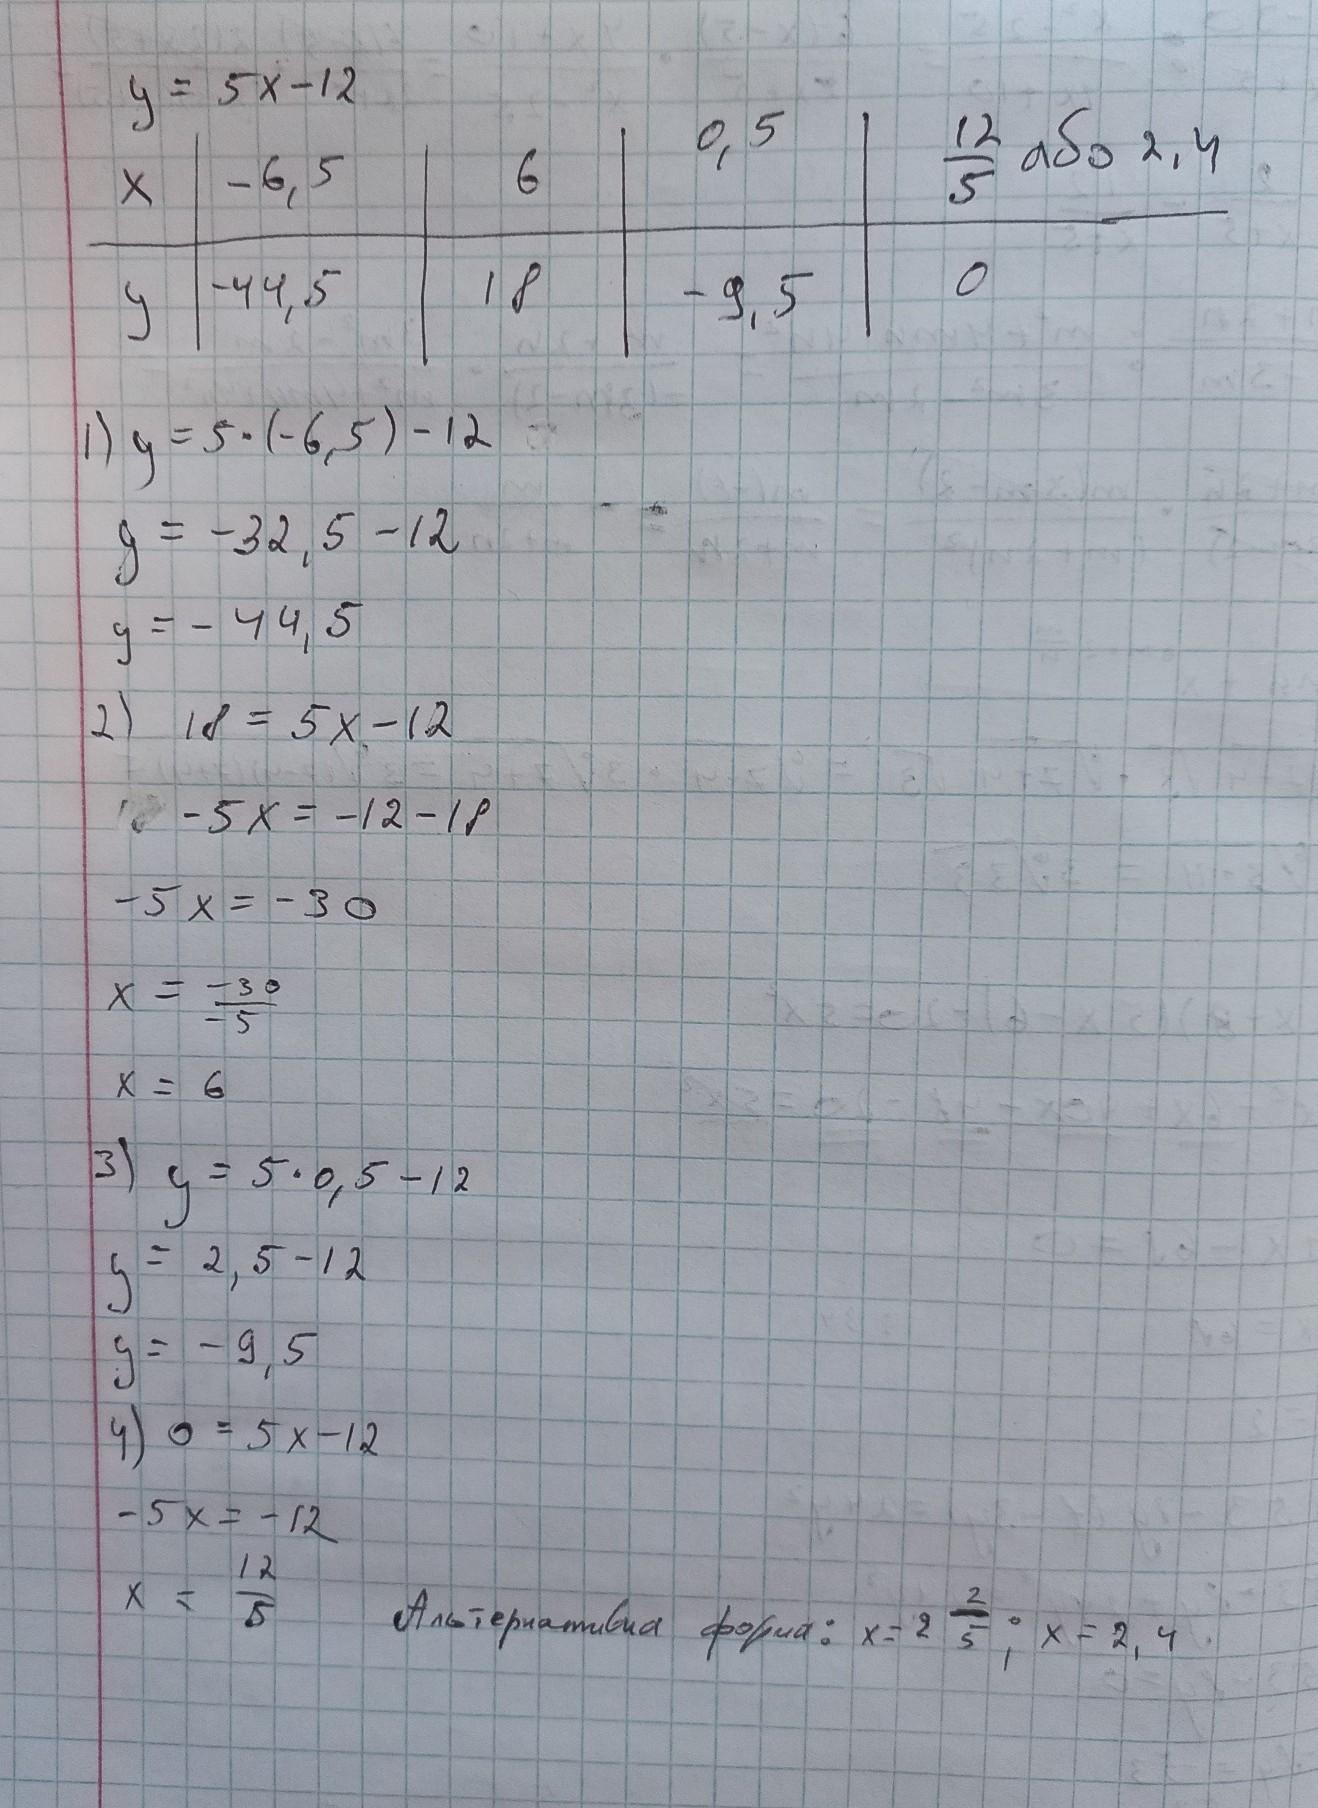 y = 5x-12
x | -6,5 | 6 | 0,5 | 12/5 або 2,4
y | -44,5 | 18 | -9,5 | 0
1) y = 5·(-6,5) - 12
y = -32,5 - 12
y = - 44,5
2) 18 = 5x - 12
-5x = -12 - 18
-5x = -30
x = -30/-5
x = 6
3) y = 5·0,5 - 12
y = 2,5 - 12
y = - 9,5
4) 0 = 5x - 12
-5x = -12
x = 12/5 Альтернативна форма: x = 2 2/5; x = 2,4